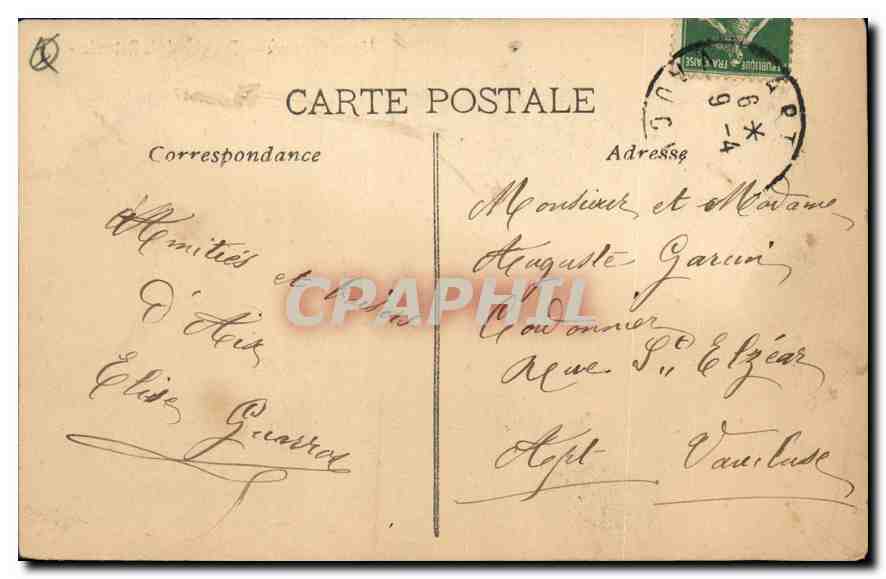 CARTE POSTALE
Correspondance
Adresse
RÉPUBLIQUE FRANÇAISE
APT
6 *
9-4
VAUC
Amitiés et bises
d'Aix
Elise
Monsieur et Madame
Auguste Garcin
Cordonnier
Rue St Elzéar
Apt Vaucluse
CPAPHIL